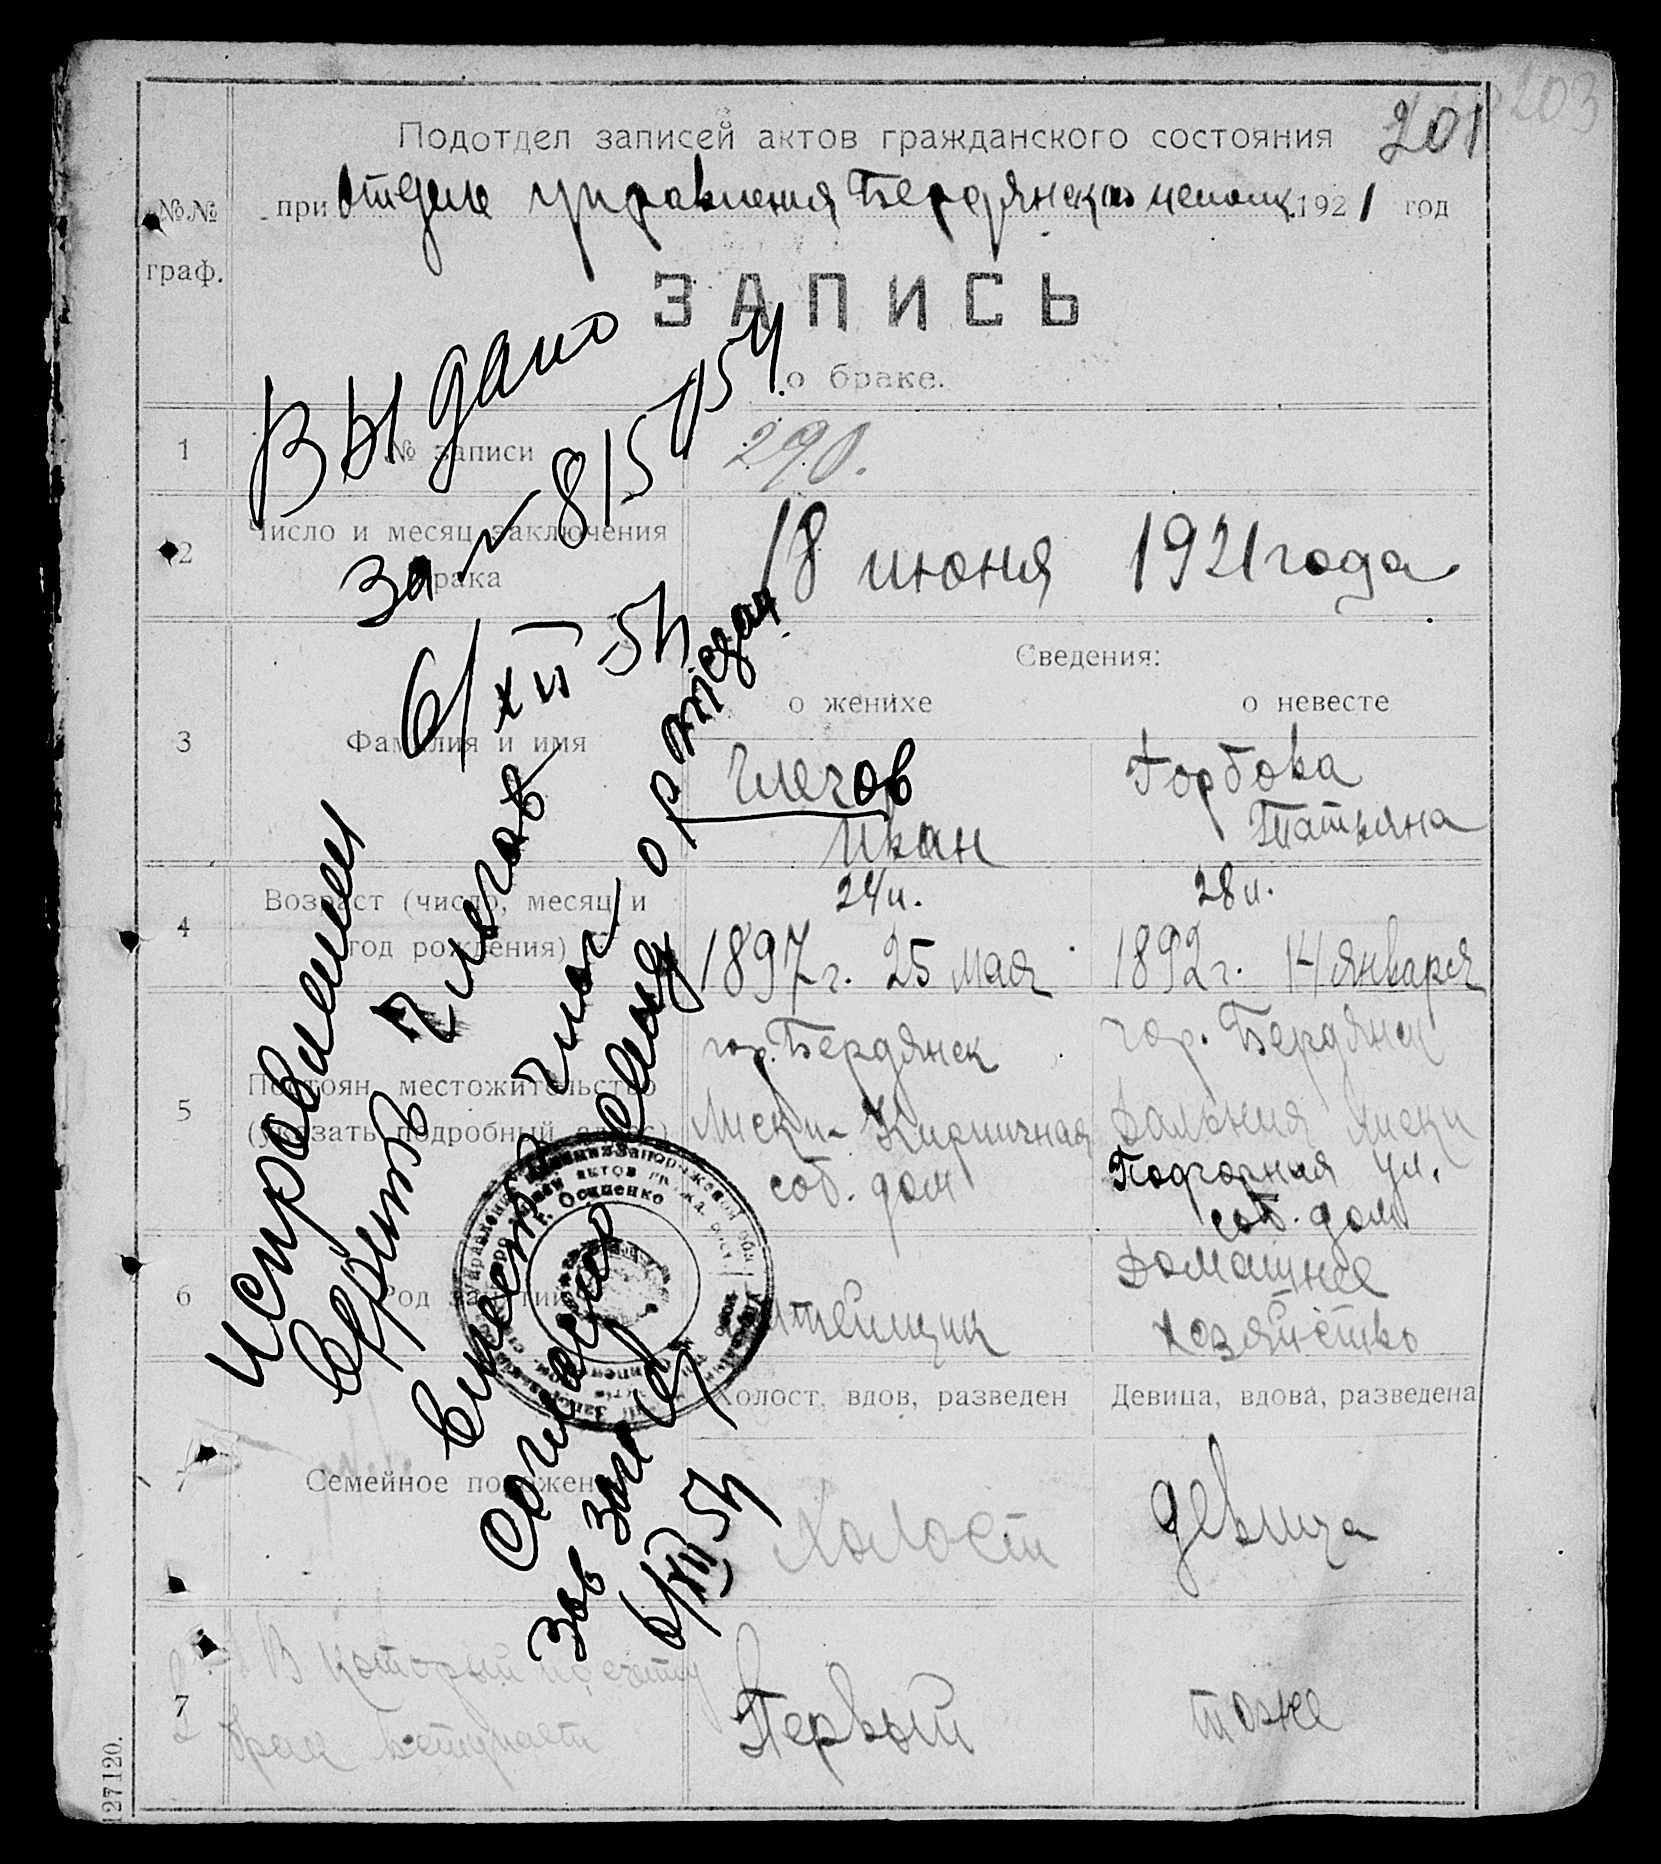 203
201
Подотдел записей актов гражданского состояния
№№ граф.
при Отделе управления Бердянского исполк. 1921 год
ЗАПИСЬ
о браке.
Выдано
за № 815054
6/XII 54
1 № записи 290.
2 Число и месяц заключения брака 18 июня 1921 года
Сведения:
о женихе о невесте
3 Фамилия и имя
Глечов Горбова
Иван Татьяна
24 л. 28 л.
4 Возраст (число, месяц и
год рождения)
1897 г. 25 мая 1892 г. 14 января
гор. Бердянск гор. Бердянск
5 Постоян. местожительство
(указать подробный адрес)
Лиски-Кирпичная Дальния Лиски
соб. дом Подгорная ул.
соб. дом
6 Род занятий
Литейщик Домашнее
хозяйство
Холост, вдов, разведен Девица, вдова, разведена
7 Семейное положение
Холост девица
7 В который по счету
брак вступает
Первый тоже
Исправлению
верить
вместо
согласно о рожден
Зав загс
6/XII 54
г. Осипенко
127120.